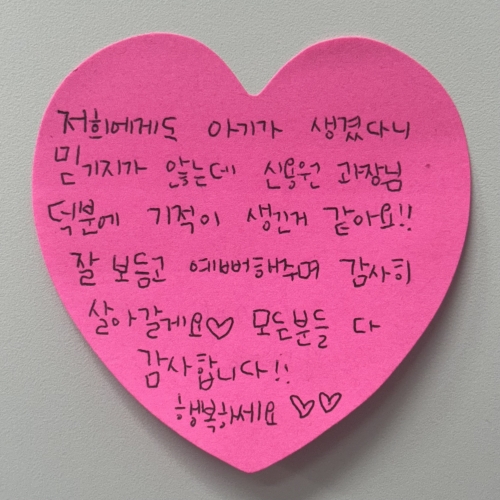 저희에게도 아기가 생겼다니
믿기지가 않는데 신용원 과장님
덕분에 기적이 생긴거 같아요!!
잘 보듬고 예뻐해주며 감사히
살아갈게요♡ 모든분들 다
감사합니다!!
행복하세요 ♡♡